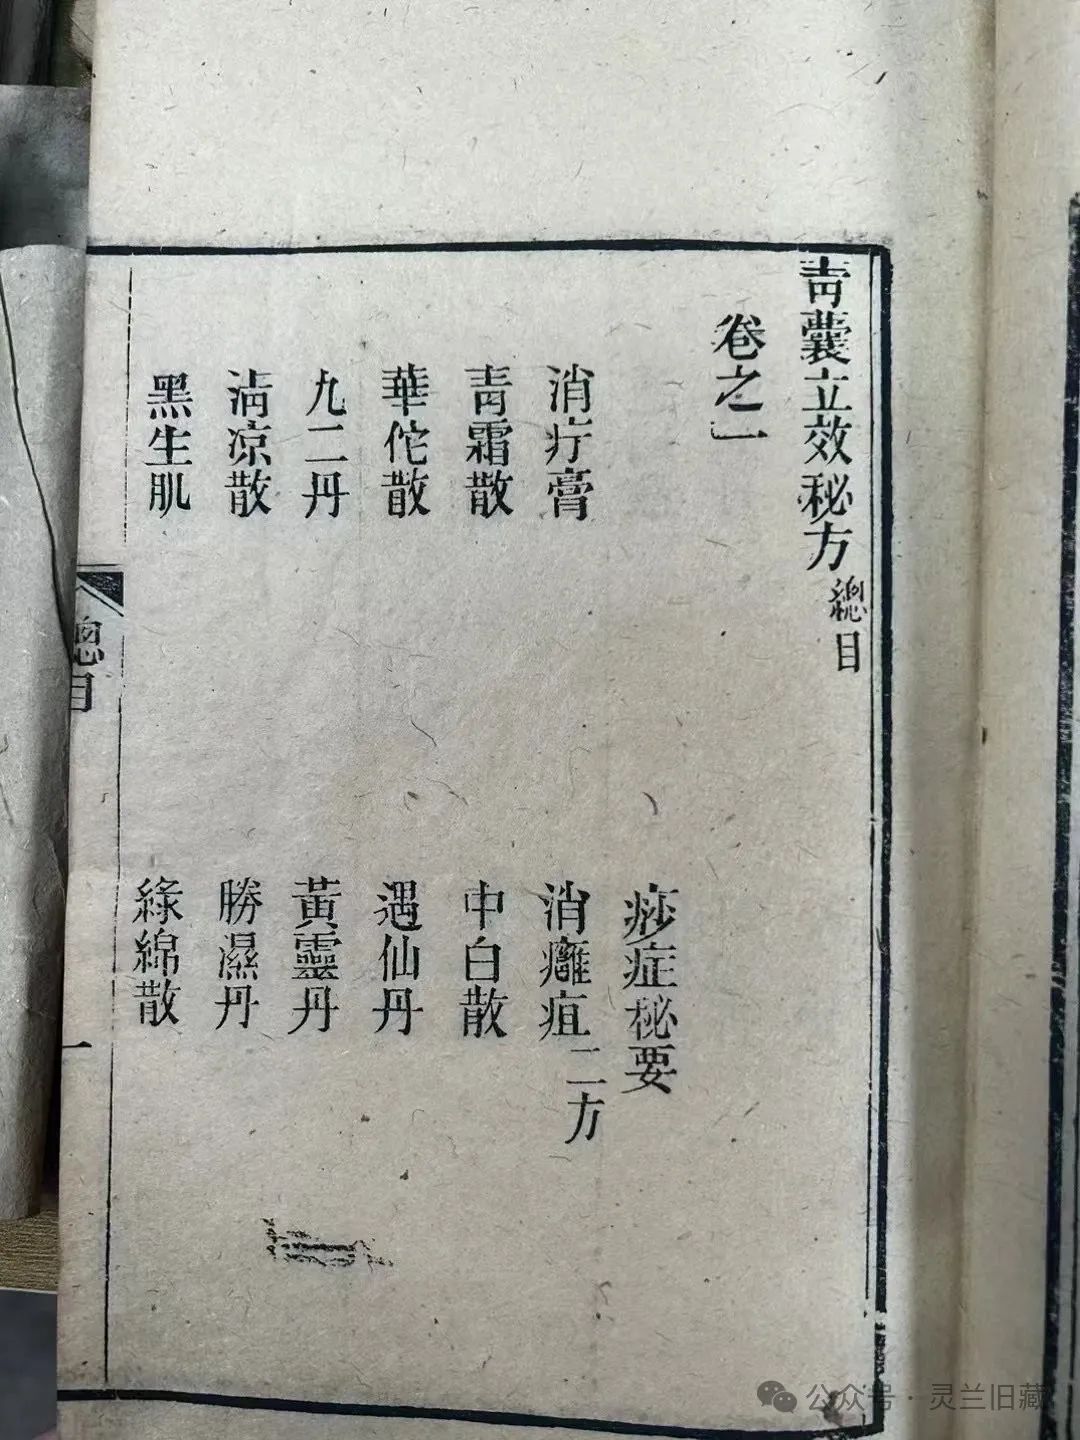 青囊立效秘方 總目
卷之一
痧症秘要
消疔膏 消癰疽 二方
青霜散 中白散
華佗散 遇仙丹
九二丹 黃靈丹
淸凉散 勝濕丹
黑生肌 綠綿散
總目 一
公众号·灵兰旧藏